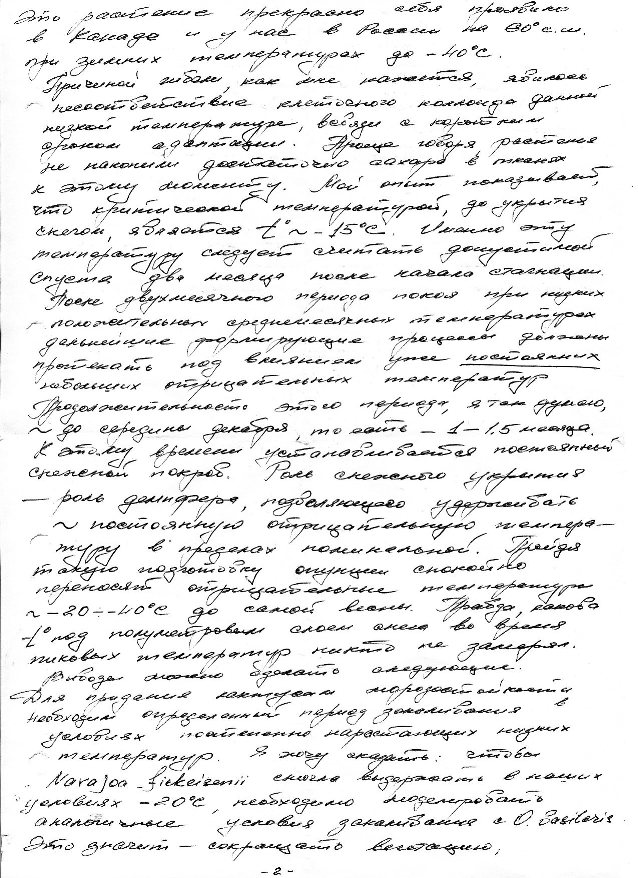 Это растение прекрасно себя проявило
в Канаде и у нас в России на 60° с.ш.
при зимних температурах до -40°С.
Причиной гибели, как мне кажется, явилось
несоответствие клеточного коллоида данной
низкой температуре, в связи с коротким
сроком адаптации. Проще говоря растения
не накопили достаточно сахара в тканях
к этому моменту. Мой опыт показывает,
что критической температурой, до укрытия
снегом, является t° ~ -15°С. Именно эту
температуру следует считать допустимой
спустя два месяца после начала стагнации.
После двухмесячного периода покоя при низких
положительных среднемесячных температурах
дальнейшие формирующие процессы должны
протекать под влиянием уже постоянных
небольших отрицательных температур
Продолжительность этого периода, я так думаю,
~ до середины декабря, то есть – 1–1,5 месяца.
К этому времени устанавливается постоянный
снежной покров. Роль снежного укрытия
– роль демпфера, позволяющего удерживать
~ постоянную отрицательную темпера–
туру в пределах номинальной. Пройдя
такую подготовку опунции спокойно
переносят отрицательные температуры
~ -20 ÷ -40°С до самой весны. Правда, какова
t° под полуметровым слоем снега во время
пиковых температур никто не замерял.
Выводы можно сделать следующие.
Для придания кактусам морозостойкости
необходим определенный период закаливания в
условиях постепенно нарастающих низких
температур. Я хочу сказать: чтобы
Navajoa fickeisenii смогла выдержать в наших
условиях -20°С, необходимо моделировать
аналогичные условия закаливания с O. basilaris
Это значит – сокращать вегетацию,
-2-